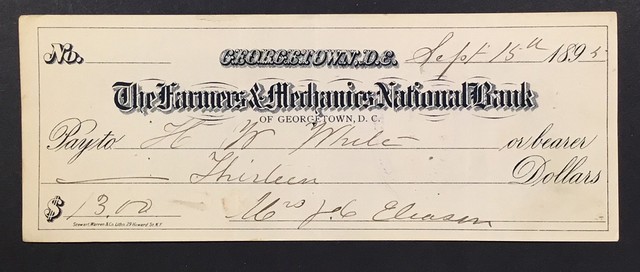 No. GEORGETOWN, D.C. Sept 15th 1895
The Farmers & Mechanics National Bank
OF GEORGETOWN, D. C.
Pay to H W White or bearer
Thirteen Dollars
$ 13.00 Mrs J C Eliason
Stewart, Warren & Co. Litho. 29 Howard St. N.Y.